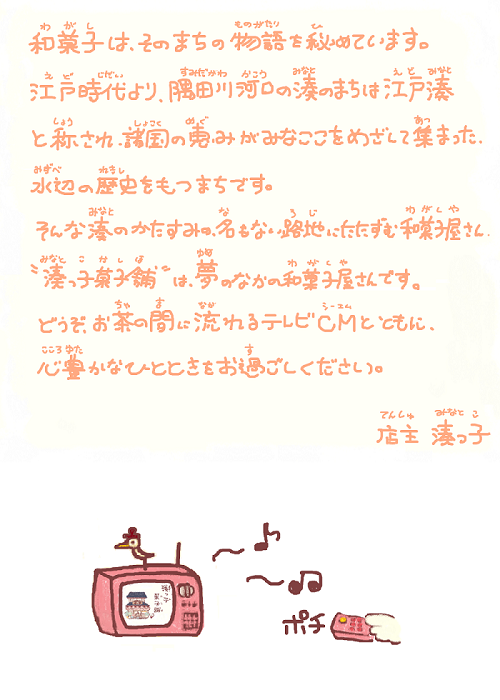 和菓子は、そのまちの物語を秘めています。
江戸時代より、隅田川河口の湊のまちは江戸湊
と称され、諸国の恵みがみなここをめざして集まった、
水辺の歴史をもつまちです。
そんな湊のかたすみの、名もない路地にたたずむ和菓子屋さん、
“湊っ子菓子舗”は、夢のなかの和菓子屋さんです。
どうぞ、お茶の間に流れるテレビCMとともに、
心豊かなひとときをお過ごしください。
店主 湊っ子
ポチ